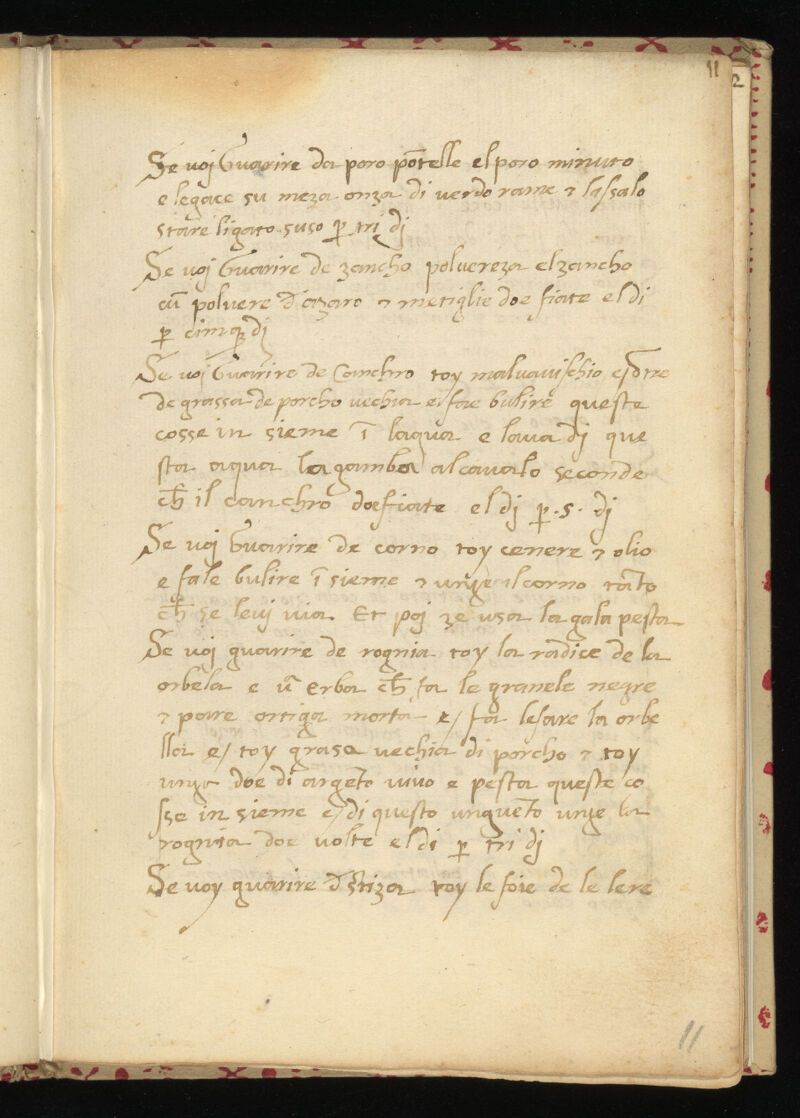 11
2
Se uoj Guarire da poro põtelle el poro minuto
e legace su meza onza di uerdo rame & lassalo
stare ligato suso p̱ tri dj
Se uoj Guarire de zancho poluereza el zancho
cũ poluere d'azaro & metiglie doe fiate el di
p̱ cinq; dj
Se uoj Guarire de Canchro toy maluauischio
de grassa de porcho uechia e/ fae bulire queste
cosse in sieme ĩ laqua e laua dj que
sta aqua la gamba al caualo seconde
ch̃ il canchro doe fiate el dj p̱ .5. dj
Se uoj Guarire de corno toy cenere & olio
e fale bulire ĩ sieme & unze il corno tãto
ch̃ se leuj uia Et poj ze usa la gala pesta
Se uoj guarire de rognia toy la radice de la
orbela e ũ erba ch̃ fa le granele negre
& pare ortiga morta e/ fa lesare la orbe
lla e/ toy grasa uechia di porcho & toy
unza doe di argẽto uiuo e pesta queste co
sse in sieme e/ di questo unguẽto unze la
rognia doe uolte el di p̱ tri dj
Se uoy guarire d' Stiza toy le foie de le lere
11